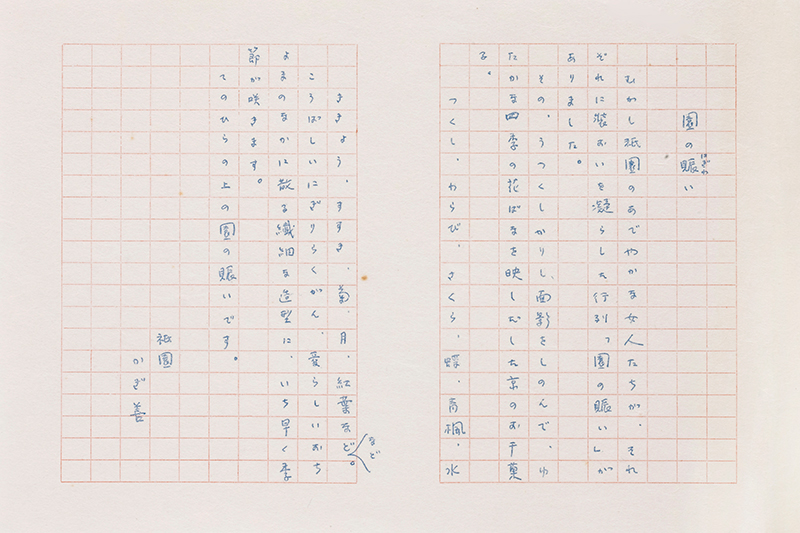 園の賑い
にぎわ
むかし祇園のあでやかな女人たちが、それ
ぞれに装おいを凝らした行列「園の賑い」が
ありました。
その、うつくしかりし面影をしのんで、ゆ
たかな四季の花ばなを映しだした京のお干菓
子。
つくし、わらび、さくら、蝶、青楓、水
ききょう、すすき、菊、月、紅葉など。
など
こうばしいにぎりらくがん、愛らしいおち
ょまのなかに散る繊細な造型に、いち早く季
節が咲きます。
てのひらの上の園の賑いです。
祇園
かぎ善